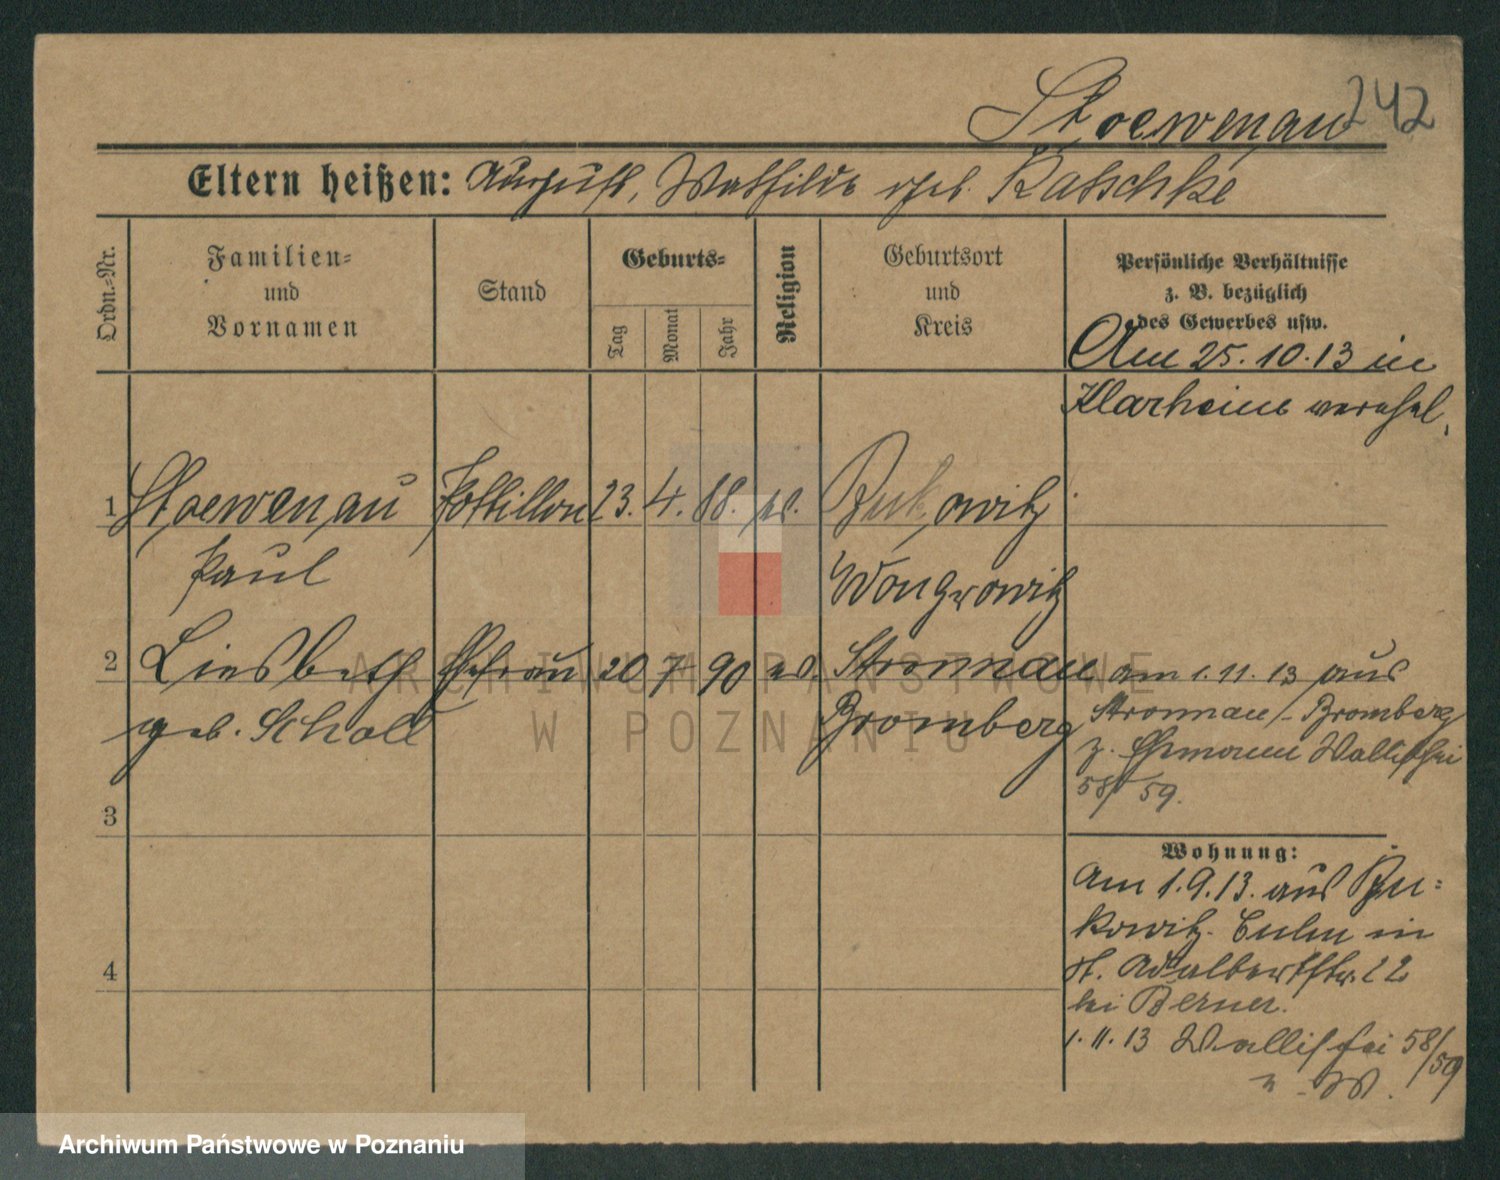 242
Stoewenau
Eltern heißen: August, Mathilde geb. Ratschke
Ordn.-Nr.
Familien-
und
Vornamen
Stand
Geburts-
Tag
Monat
Jahr
Religion
Geburtsort
und
Kreis
Persönliche Verhältnisse
z. B. bezüglich
des Gewerbes usw.
Am 25.10.13 in
Klarheim verehel.
1 Stoewenau Postillon 23. 4. 88. ev. Bukowitz
Paul Wongrowitz
2 Liesbeth Ehefrau 20 7 90 ev. Stronnau
geb. Scholl Bromberg
am 1.11.13 aus
Stronnau/-Bromberg
z. Ehemann Wallischei
58/59.
3
4
Wohnung:
Am 1.9.13. aus Bu-
kowitz. Culm in
St. Adalbertstr. 22
bei Berner.
1.11.13 Wallischei 58/59
ARCHIWUM PAŃSTWOWE
W POZNANIU
Archiwum Państwowe w Poznaniu